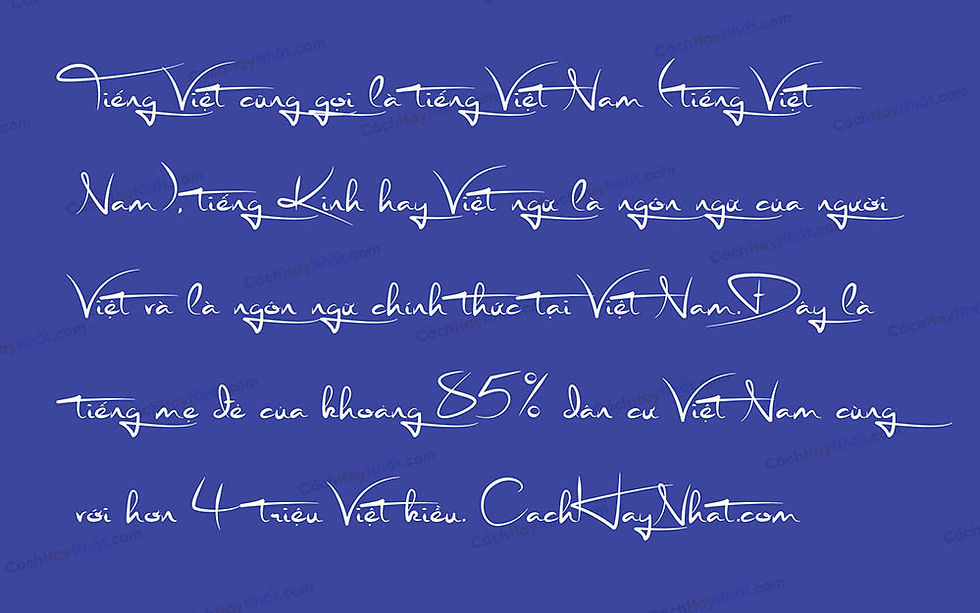 Tiếng Việt cũng gọi là tiếng Việt Nam (tiếng Việt
Nam), tiếng Kinh hay Việt ngữ là ngôn ngữ của người
Việt và là ngôn ngữ chính thức tại Việt Nam. Đây là
tiếng mẹ đẻ của khoảng 85% dân cư Việt Nam cùng
với hơn 4 triệu Việt kiều. CachHayNhat.com